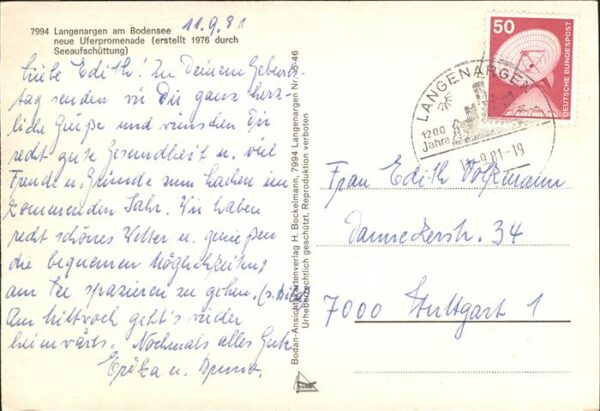 7994 Langenargen am Bodensee
neue Uferpromenade (erstellt 1976 durch
Seeaufschüttung)
11.9.81
Liebe Edith! Zu Deinem Geburts-
tag senden wir Dir ganz herz-
liche Grüße und wünschen Dir
recht gute Gesundheit u. viel
Freude u. Gründe zum Lachen im
kommenden Jahr. Wir haben
recht schönes Wetter u. genießen
die bequemen Möglichkeiten,
am See spazieren zu gehen.
Am Mittwoch geht's wieder
heimwärts. Nochmals alles Gute
Erika u.
Bodan-Ansichtskartenverlag H. Bockelmann, 7994 Langenargen
Urheberrechtlich geschützt, Reproduktion verboten
50
DEUTSCHE BUNDESPOST
LANGENARGEN
1200
Jahre
9.81-19
Frau Edith Volkmann
Danneckerstr. 34
7000 Stuttgart 1